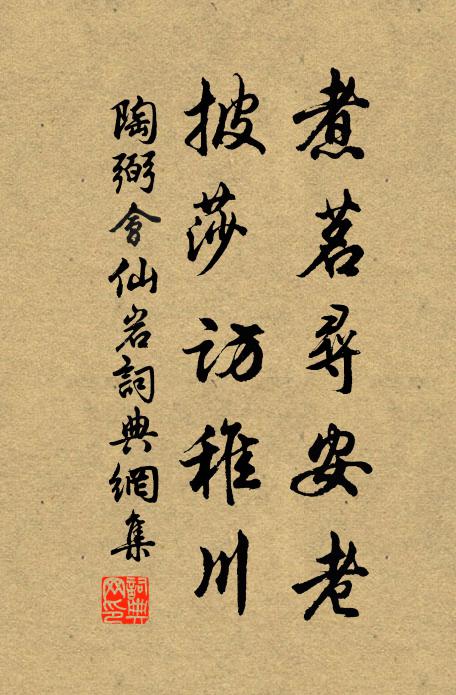 煮茗尋安老
披莎訪稚川
陶弼會仙岩詞典網集
詞典网印